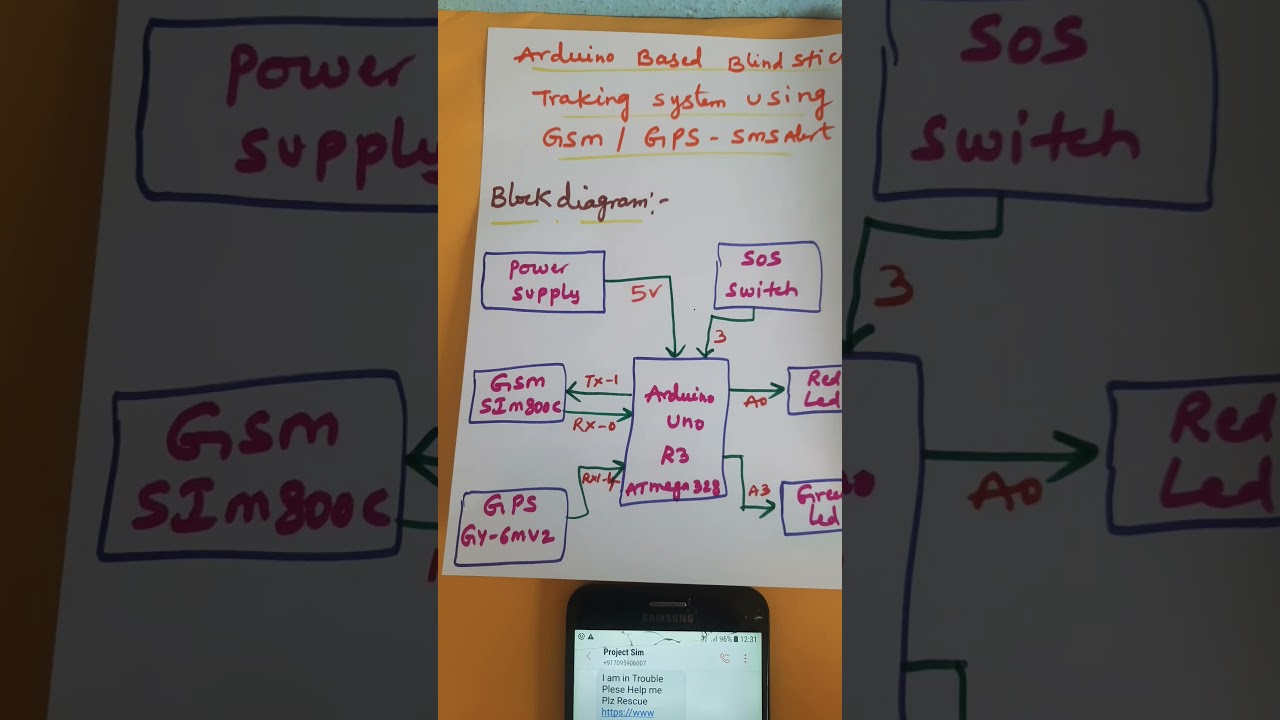 Arduino Based Blind stic
Traking system using
Gsm / GPS - sms Alert
Block diagram:-
Power
supply
5V
SOS
switch
3
Gsm
SIm800c
Tx-1
RX-0
Arduino
Uno
R3
ATmega328
A0
Red
Led
GPS
GY-6mV2
A3
Green
Led
SAMSUNG
96% 12:31
Project Sim
+917095906007
I am in Trouble
Plese Help me
Plz Rescue
https://www
Power
supply
Gsm
SIm800c
SOS
switch
3
A0
Red
Led